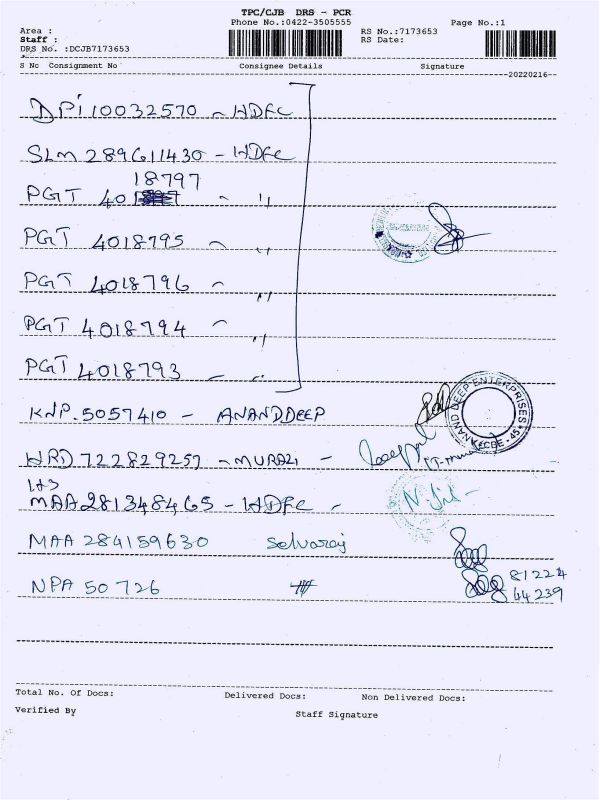 TPC/CJB DRS - PCR
Phone No.:0422-3505555 Page No.:1
Area :
Staff : RS No.:7173653
DRS No. :DCJB7173653 RS Date:
S No Consignment No Consignee Details Signature
20220216
DPI 10032570 - HDFC
SLM 289611430 - HDFC
PGT 4018797 - "
PGT 4018795 - "
PGT 4018796 - "
PGT 4018794 - "
PGT 4018793 - "
KNP. 5057410 - ANANDDEEP
ANAND DEEP ENTERPRISES
CBE - 45
WRD 722829257 - MURALI -
MAA 281348465 - HDFC -
MAA 284159630 Selvaraj
NPA 50726 81224
44239
Total No. Of Docs: Delivered Docs: Non Delivered Docs:
Verified By Staff Signature